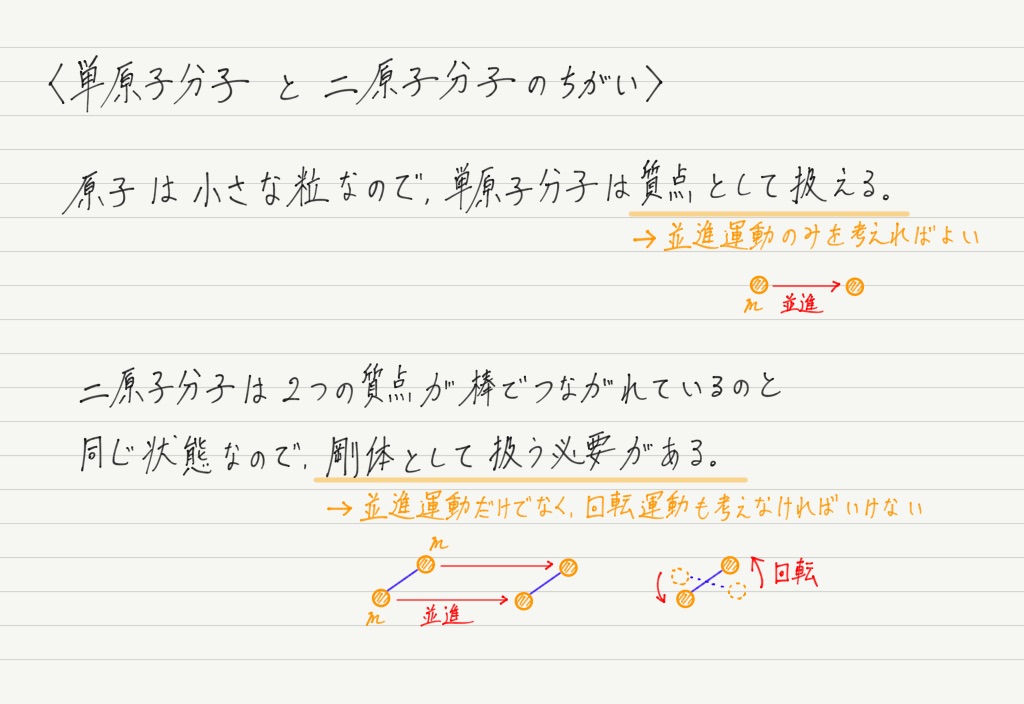 〈単原子分子と二原子分子のちがい〉
原子は小さな粒なので，単原子分子は質点として扱える。
→並進運動のみを考えればよい
m
並進
二原子分子は2つの質点が棒でつながれているのと
同じ状態なので，剛体として扱う必要がある。
→並進運動だけでなく，回転運動も考えなければいけない
m
m
並進
回転